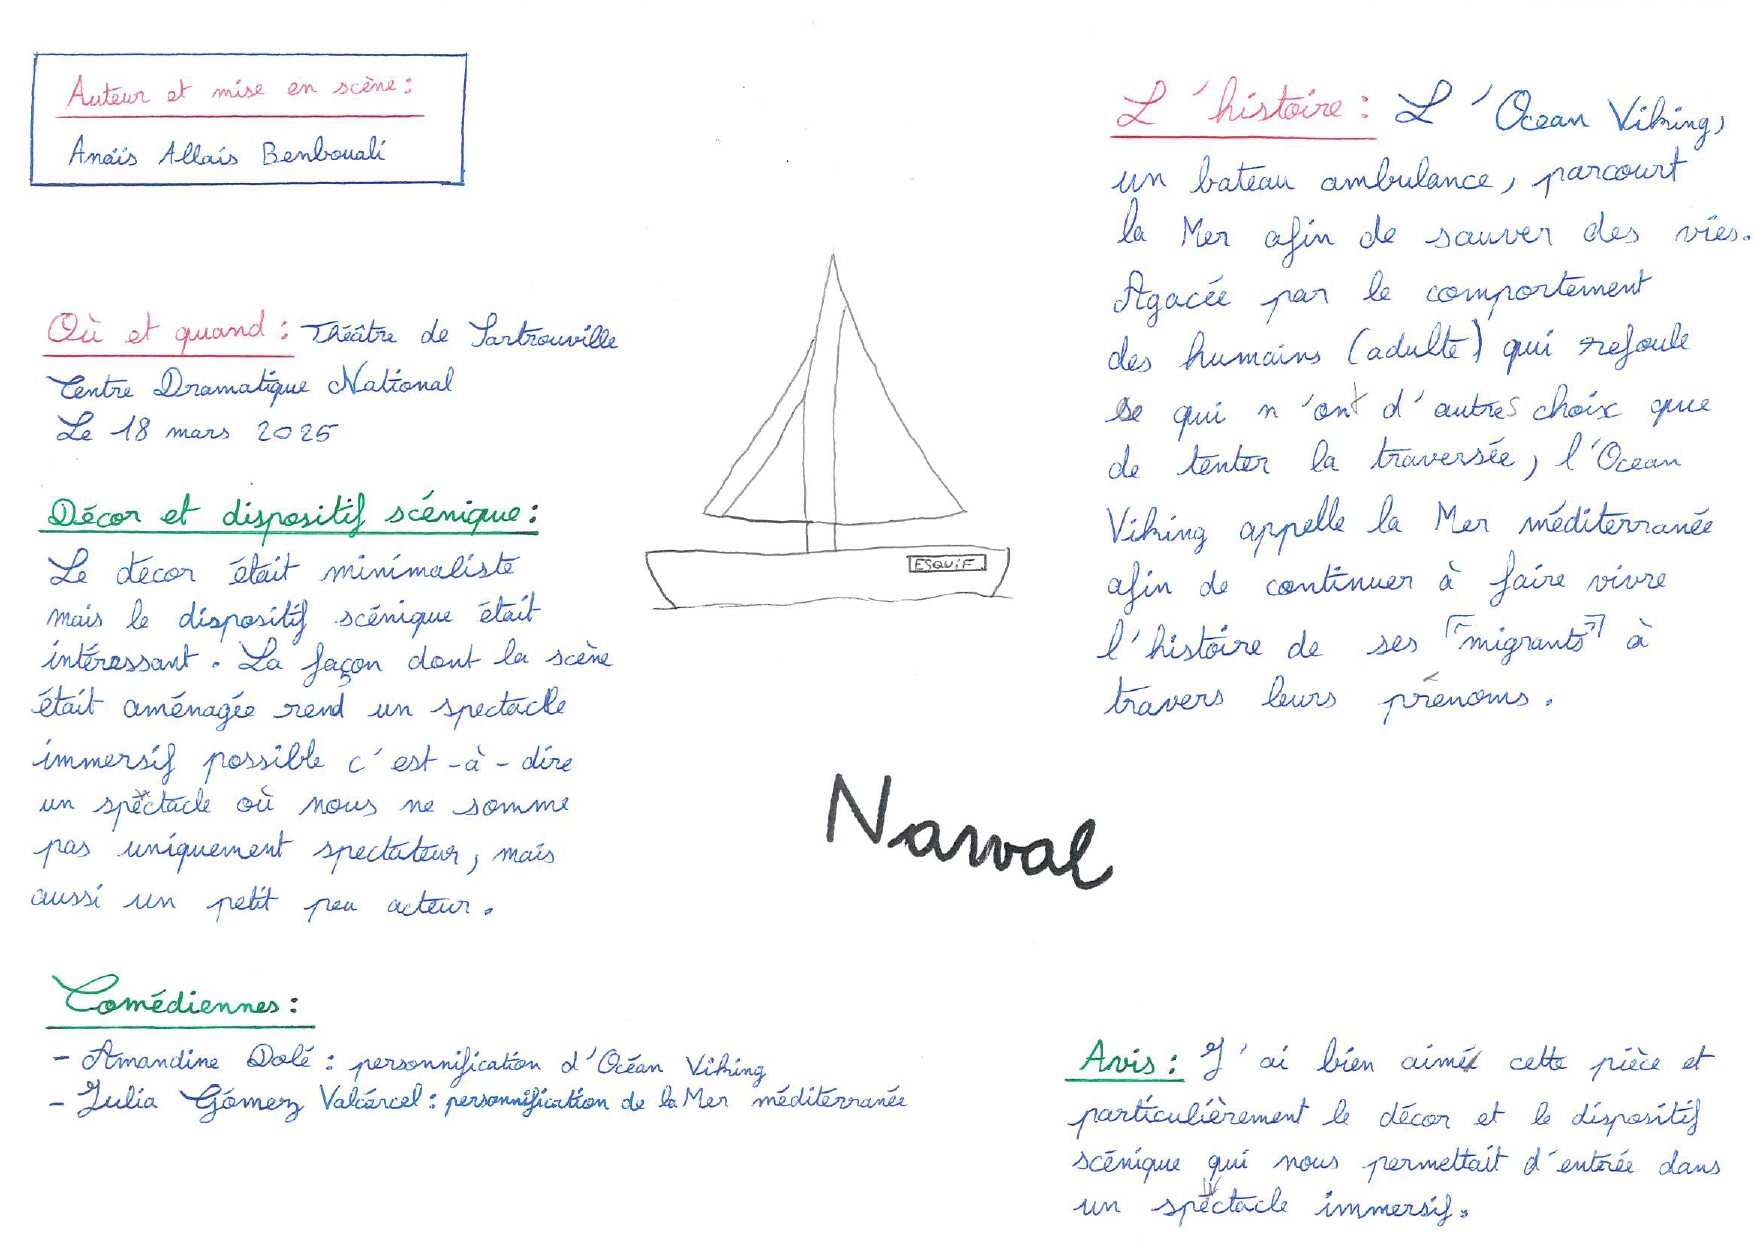 Auteur et mise en scène :
Anaïs Allais Benbouali
Où et quand : Théâtre de Sartrouville
Centre Dramatique National
Le 18 mars 2025
Décor et dispositif scénique :
Le décor était minimaliste
mais le dispositif scénique était
intéressant. La façon dont la scène
était aménagée rend un spectacle
immersif possible c'est-à-dire
un spectacle où nous ne somme
pas uniquement spectateur, mais
aussi un petit peu acteur.
Comédiennes :
- Amandine Dolé : personnification d'Océan Viking
- Julia Gómez Valcárcel : personnification de la Mer méditerranée
ESQUIF
Narval
L'histoire : L'Ocean Viking,
un bateau ambulance, parcourt
la Mer afin de sauver des vies.
Agacée par le comportement
des humains (adulte) qui refoule
se qui n'ont d'autres choix que
de tenter la traversée, l'Ocean
Viking appelle la Mer méditerranée
afin de continuer à faire vivre
l'histoire de ses "migrants" à
travers leurs prénoms.
Avis : J'ai bien aimé cette pièce et
particulièrement le décor et le dispositif
scénique qui nous permettait d'entrée dans
un spectacle immersif.